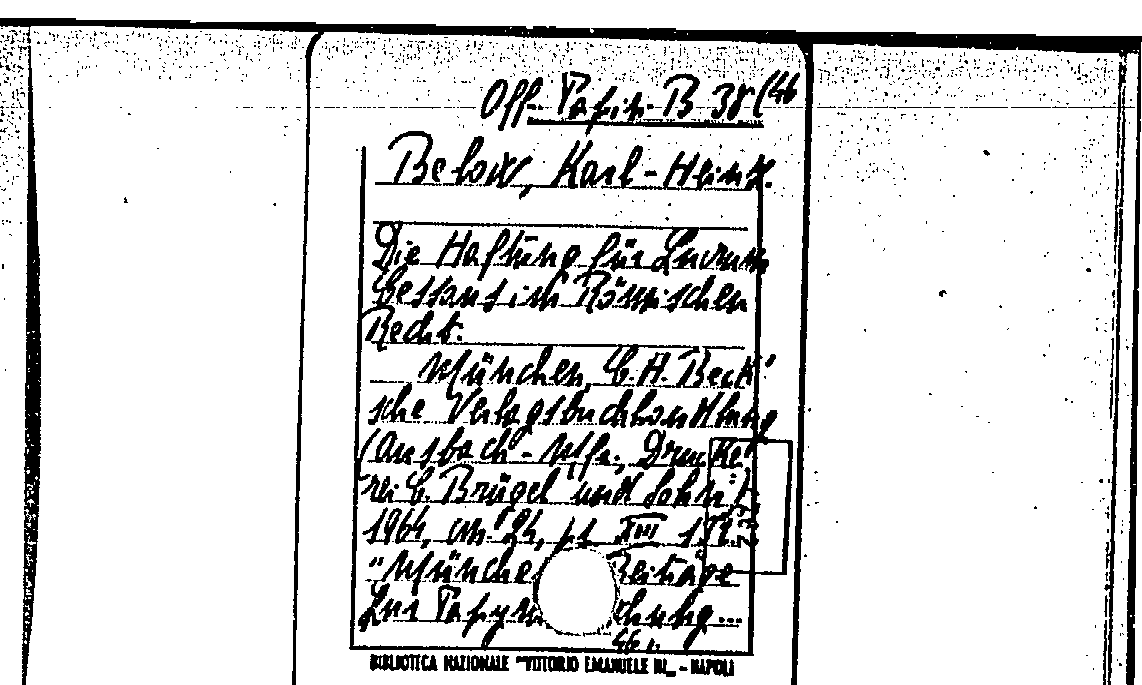 Off. Papir. B 38 (46
Below, Karl-Heinz.
Die Haftung für Lucrum
Cessans im Römischen
Recht.
München, C. H. Beck'
sche Verlagsbuchhandlung
(Ansbach - Mfr., Drucke
rei C. Brügel und Sohn)
1964, cm 24, pp XIII
"Münchener Beiträge
zur
46.
BIBLIOTECA NAZIONALE "VITTORIO EMANUELE III„ - NAPOLI